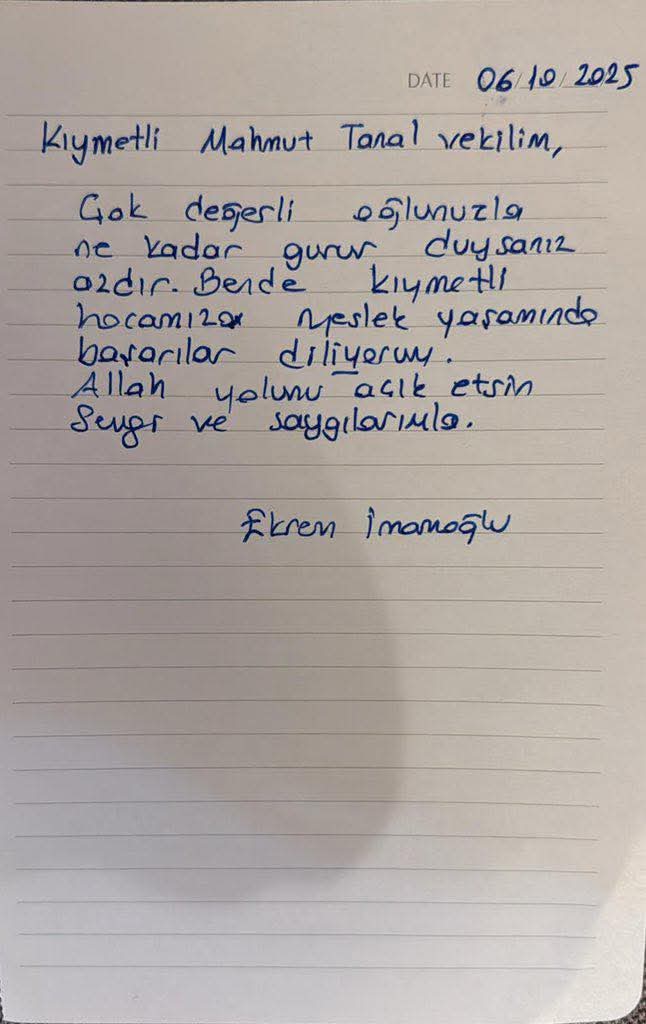 DATE 06/10/2025
Kıymetli Mahmut Tanal vekilim,
Çok değerli oğlunuzla
ne kadar gurur duysanız
azdır. Bende kıymetli
hocamıza meslek yaşamında
başarılar diliyorum.
Allah yolunu açık etsin
Sevgi ve saygılarımla.
Ekrem İmamoğlu